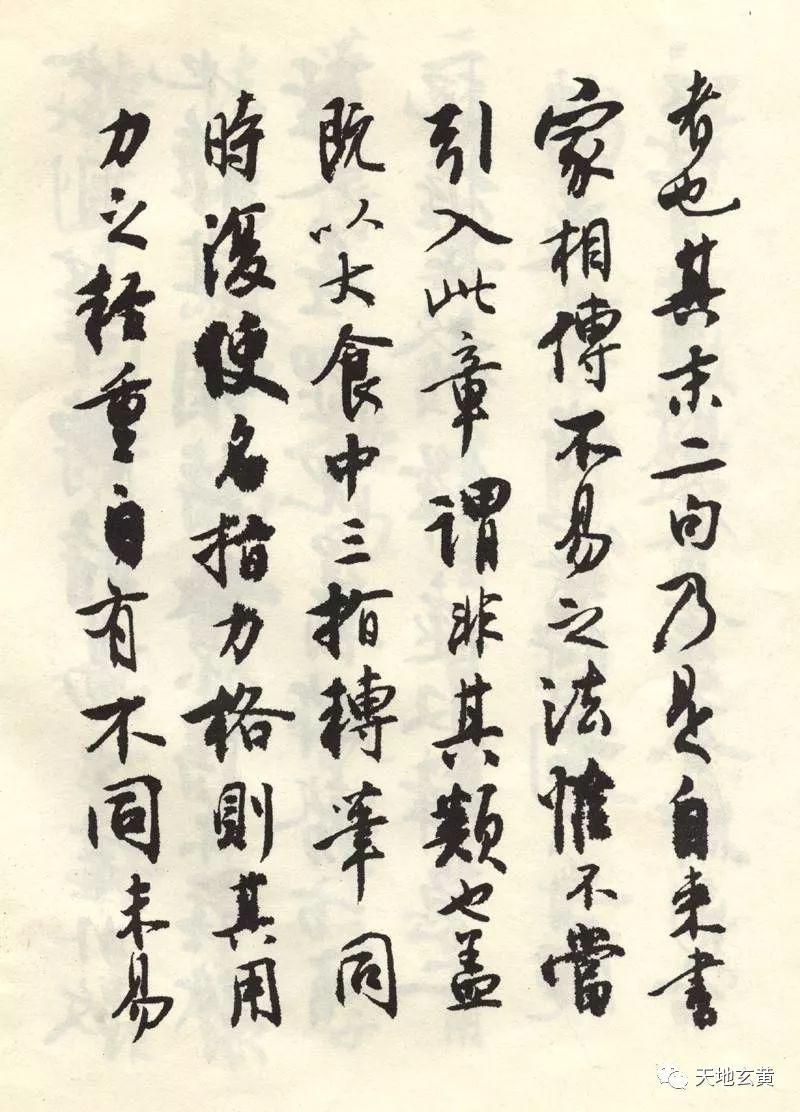 者也其末二句乃是自来書
家相傳不易之法惟不當
引入此章謂非其類也盖
既以大食中三指轉筆同
時復使名指力格則其用
力之輕重自有不同未易
天地玄黄